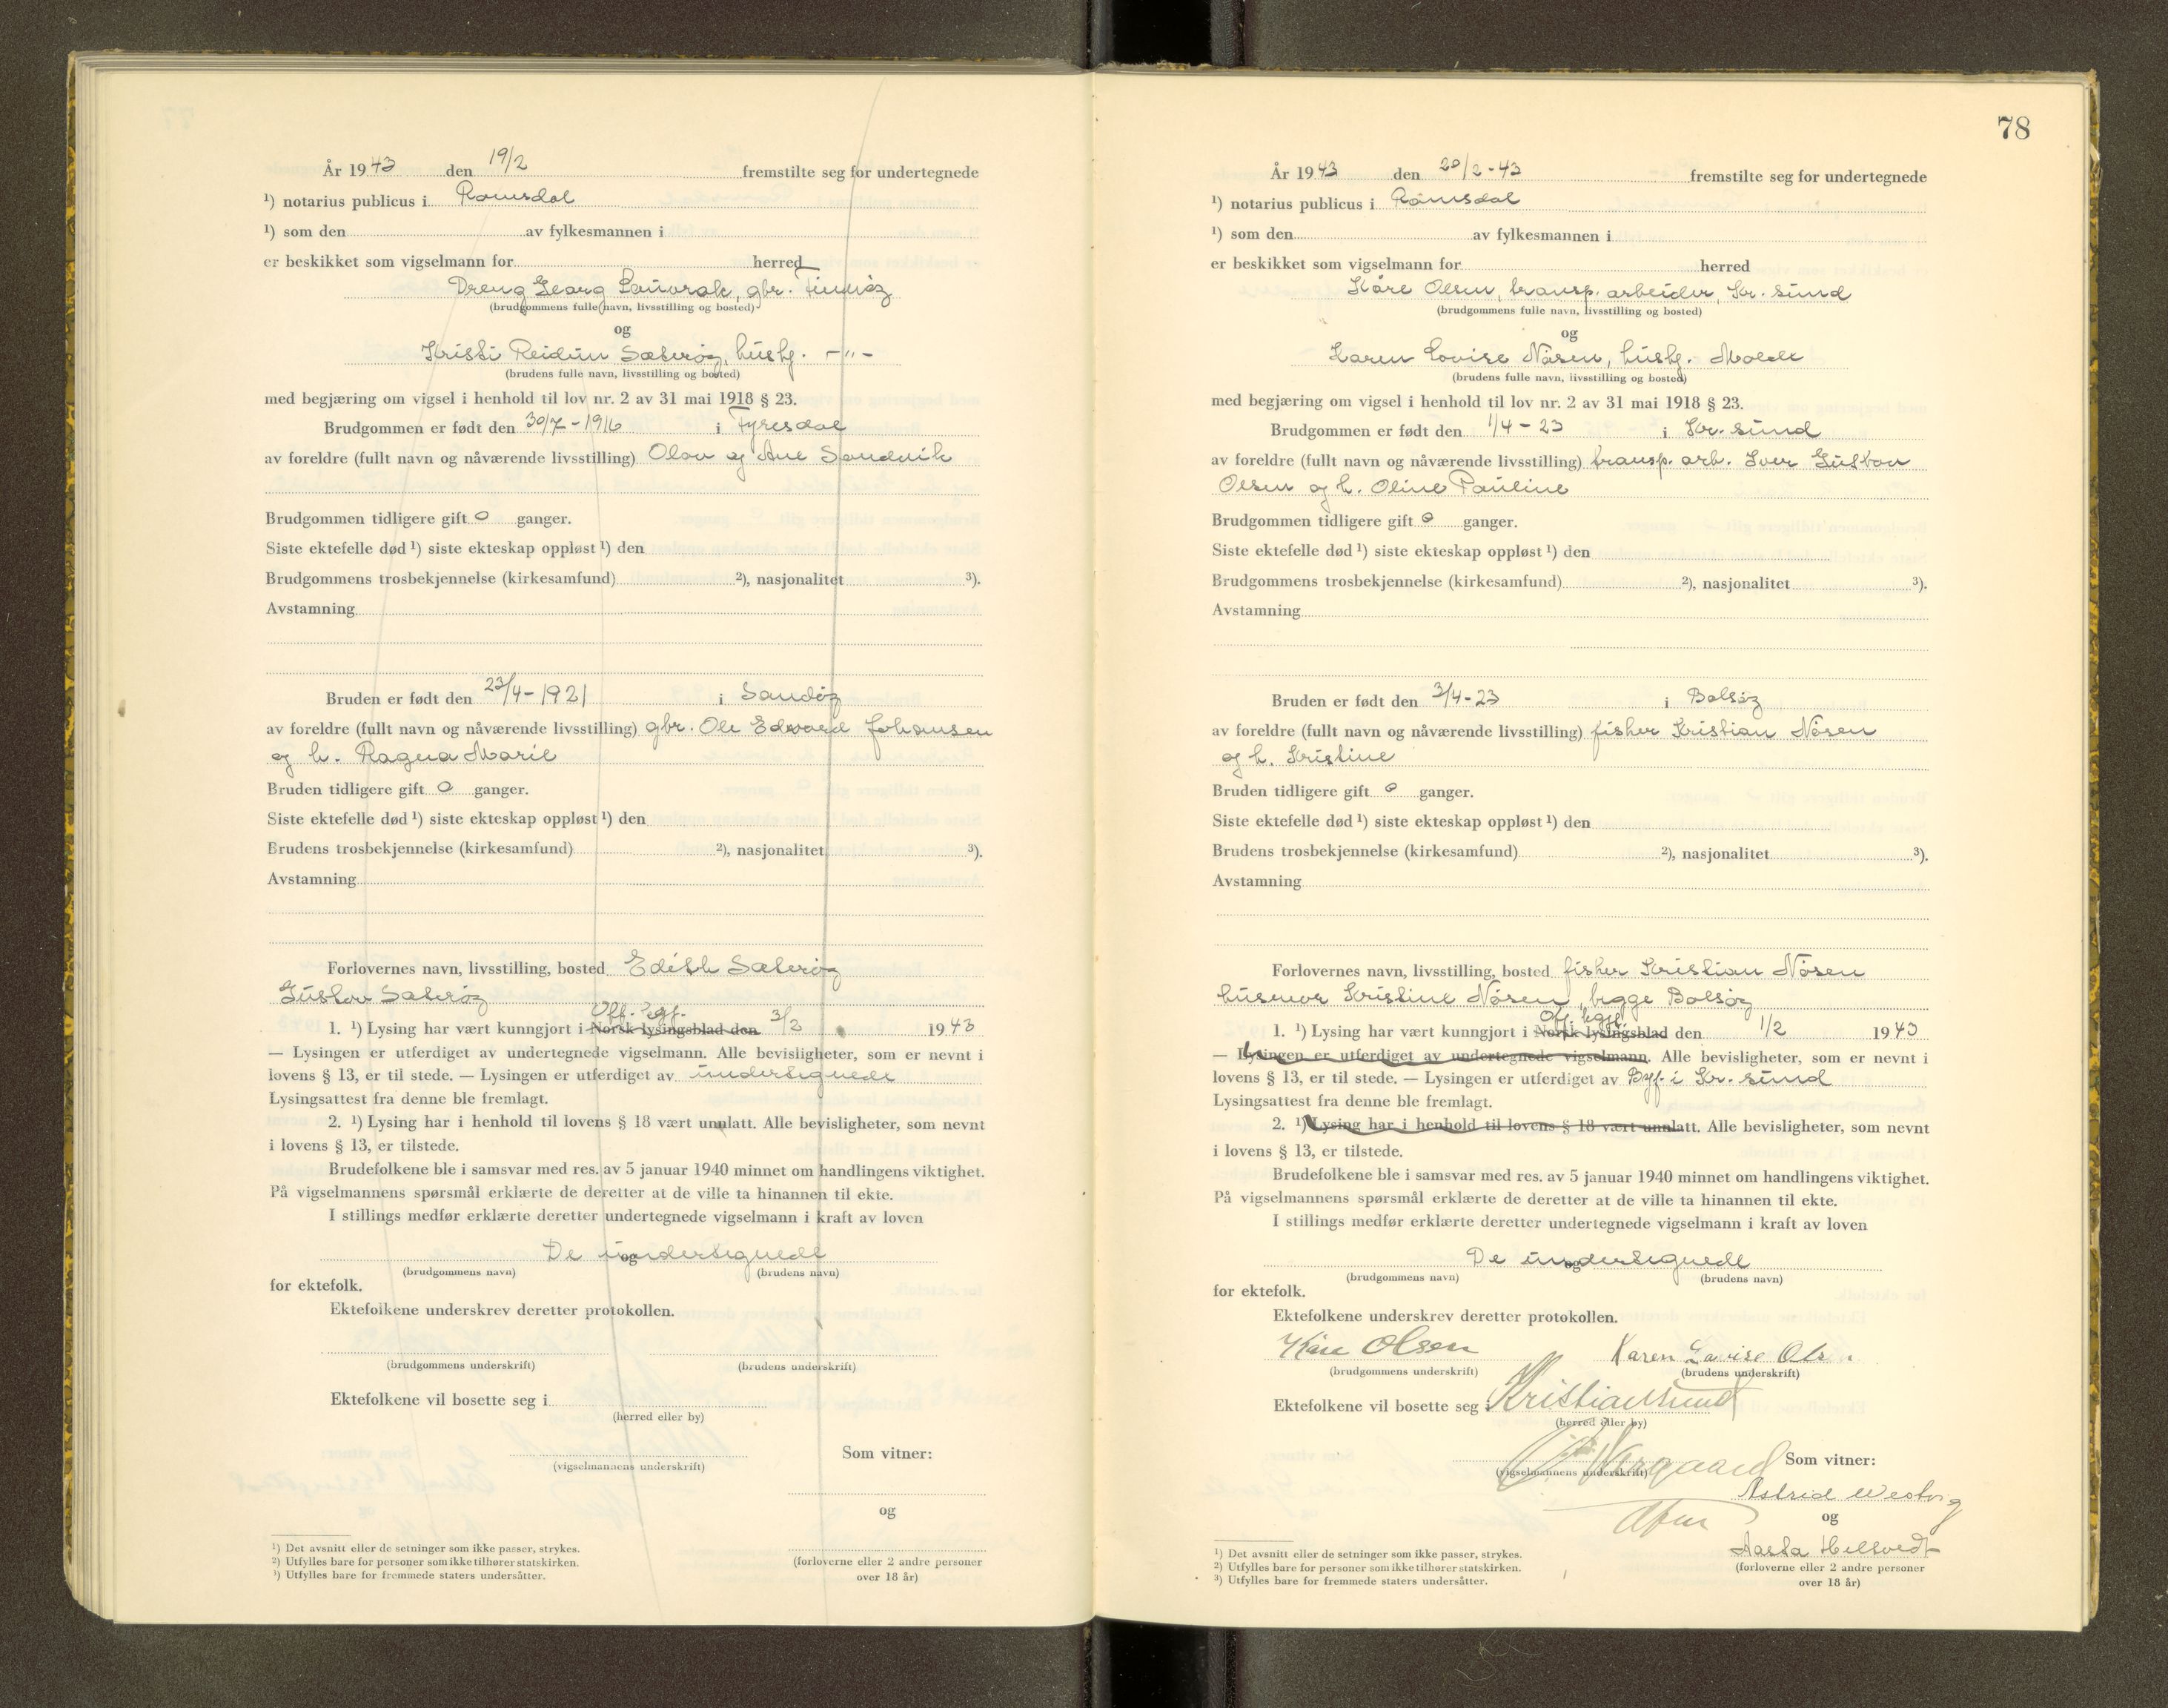 År 1943 den 19/2 fremstilte seg for undertegnede
¹) notarius publicus i Romsdal
¹) som den av fylkesmannen i
er beskikket som vigselmann for herred
Dreng Georg gbr.
(brudgommens fulle navn, livsstilling og bosted)
og
Kristi Reidun Sæterøy, hush. -"-
(brudens fulle navn, livsstilling og bosted)
med begjæring om vigsel i henhold til lov nr. 2 av 31 mai 1918 § 23.
Brudgommen er født den 30/7-1916 i Fyresdal
av foreldre (fullt navn og nåværende livsstilling) Olav og Ane Sandvik
Brudgommen tidligere gift 0 ganger.
Siste ektefelle død ¹) siste ekteskap oppløst ¹) den
Brudgommens trosbekjennelse (kirkesamfund) ²), nasjonalitet ³).
Avstamning
Bruden er født den 23/4-1921 i Sandøy
av foreldre (fullt navn og nåværende livsstilling) gbr. Ole Edvard Johansen
og h. Ragna Marie
Bruden tidligere gift 0 ganger.
Siste ektefelle død ¹) siste ekteskap oppløst ¹) den
Brudens trosbekjennelse (kirkesamfund) ²), nasjonalitet ³).
Avstamning
Forlovernes navn, livsstilling, bosted Edith Sæterøy
Gustav Sæterøy
Off. kgj.
1. ¹) Lysing har vært kunngjort i Norsk lysingsblad den 3/2 1943
— Lysingen er utferdiget av undertegnede vigselmann. Alle bevisligheter, som er nevnt i
lovens § 13, er til stede. — Lysingen er utferdiget av undertegnede
Lysingsattest fra denne ble fremlagt.
2. ¹) Lysing har i henhold til lovens § 18 vært unnlatt. Alle bevisligheter, som nevnt
i lovens § 13, er tilstede.
Brudefolkene ble i samsvar med res. av 5 januar 1940 minnet om handlingens viktighet.
På vigselmannens spørsmål erklærte de deretter at de ville ta hinannen til ekte.
I stillings medfør erklærte deretter undertegnede vigselmann i kraft av loven
De undertegnede
og
(brudgommens navn) (brudens navn)
for ektefolk.
Ektefolkene underskrev deretter protokollen.
(brudgommens underskrift) (brudens underskrift)
Ektefolkene vil bosette seg i
(herred eller by)
Som vitner:
(vigselmannens underskrift)
og
(forloverne eller 2 andre personer
over 18 år)
¹) Det avsnitt eller de setninger som ikke passer, strykes.
²) Utfylles bare for personer som ikke tilhører statskirken.
³) Utfylles bare for fremmede staters undersåtter.
78
År 1943 den 20/2-43 fremstilte seg for undertegnede
¹) notarius publicus i Romsdal
¹) som den av fylkesmannen i
er beskikket som vigselmann for herred
Kåre Olsen, transp. arbeider, Kr. sund
(brudgommens fulle navn, livsstilling og bosted)
og
Karen Lovise Nåsen, hush. Molde
(brudens fulle navn, livsstilling og bosted)
med begjæring om vigsel i henhold til lov nr. 2 av 31 mai 1918 § 23.
Brudgommen er født den 1/4-23 i Kr. sund
av foreldre (fullt navn og nåværende livsstilling) transp. arb. Iver Gustav
Olsen og h. Oline Pauline
Brudgommen tidligere gift 0 ganger.
Siste ektefelle død ¹) siste ekteskap oppløst ¹) den
Brudgommens trosbekjennelse (kirkesamfund) ²), nasjonalitet ³).
Avstamning
Bruden er født den 3/4-23 i Bolsøy
av foreldre (fullt navn og nåværende livsstilling) fisker Kristian Nåsen
og h. Kristine
Bruden tidligere gift 0 ganger.
Siste ektefelle død ¹) siste ekteskap oppløst ¹) den
Brudens trosbekjennelse (kirkesamfund) ²), nasjonalitet ³).
Avstamning
Forlovernes navn, livsstilling, bosted fisker Kristian Nåsen
husmor Kristine Nåsen, begge Bolsøy
Off. kgj.
1. ¹) Lysing har vært kunngjort i Norsk lysingsblad den 1/2 1943
— Lysingen er utferdiget av undertegnede vigselmann. Alle bevisligheter, som er nevnt i
lovens § 13, er til stede. — Lysingen er utferdiget av Byf. i Kr. sund
Lysingsattest fra denne ble fremlagt.
2. ¹) Lysing har i henhold til lovens § 18 vært unnlatt. Alle bevisligheter, som nevnt
i lovens § 13, er tilstede.
Brudefolkene ble i samsvar med res. av 5 januar 1940 minnet om handlingens viktighet.
På vigselmannens spørsmål erklærte de deretter at de ville ta hinannen til ekte.
I stillings medfør erklærte deretter undertegnede vigselmann i kraft av loven
De undertegnede
og
(brudgommens navn) (brudens navn)
for ektefolk.
Ektefolkene underskrev deretter protokollen.
Kåre Olsen Karen Lovise Olsen
(brudgommens underskrift) (brudens underskrift)
Ektefolkene vil bosette seg i Kristiansund
(herred eller by)
Som vitner:
(vigselmannens underskrift)
Astrid
og
Aasta Hellsvedt
(forloverne eller 2 andre personer
over 18 år)
¹) Det avsnitt eller de setninger som ikke passer, strykes.
²) Utfylles bare for personer som ikke tilhører statskirken.
³) Utfylles bare for fremmede staters undersåtter.